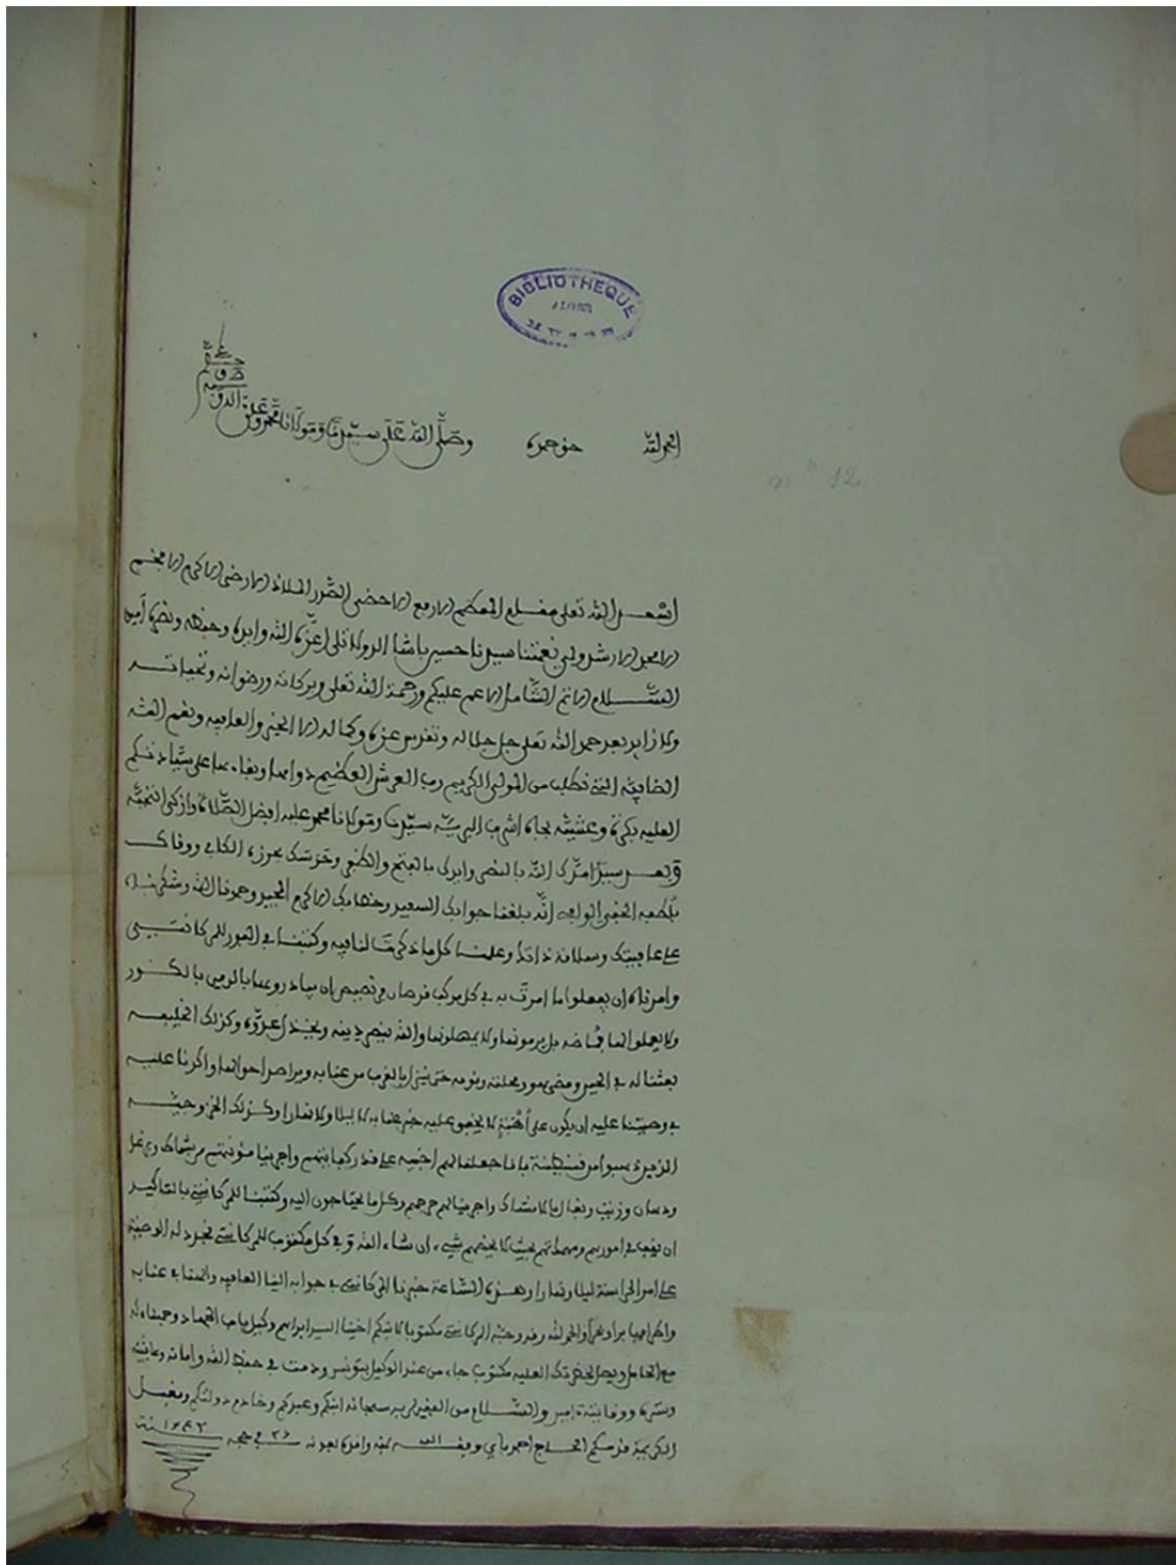 BIBLIOTHEQUE
الحمد لله حق حمده وصلى الله على سيدنا ومولانا محمد وعلى آله
n° 12
أسعد الله تعلى مقام المعظم الارفع الاحضى الصدر الملاذ الارضى الاكرم الافخم
الامجد الارشد ولي نعمتنا سيدنا حسين باشا الدولاتلي اعزه الله وايده وحفظه ونصره آمين
السلام الاتم الشامل الاعم عليكم ورحمة الله تعلى وبركاته ورضوانه وتحياته
ولا زايد بعد حمد الله تعلى جل جلاله وتقدس عزه وكماله الا الخير والعافية ونعم الله
الضافية التي نطلب من المولى الكريم رب العرش العظيم دوامها وبقاءها على سيادتكم
العلية بكرة وعشية بجاه اشرف البرية سيدنا ومولانا محمد عليه افضل الصلاة وازكى التحية
وبعد سيدي امدك الله بالنصر وايدك بالفتح والظفر وحرسك بحرزه الكافي ووقاك
بلطفه الخفي الوافي انه بلغنا جوابك السعيد وخطابك الاكرم المجيد وحمدنا الله وشكرناه
على عافيتك وسلامة ذاتك وعلمنا كل ما ذكرت لنا فيه وكتبنا في الفور للمركانتي
وامرناه ان يفعلوا ما امرت به في كل مركب فرصان ان بالرمي بالكور
ولا بل يرمونها ولا يمهلونها والله ينصر دينه ويخذل اعدوه وكذلك الخليفة
بعثنا له في الحين ومضى هو ومحلته وقومه حتى ينزل بالقرب من عنابه ويراصد احوالها واكدنا عليه
في وصيتنا عليه ان يكون على أهبة لا يخفى عليه خبر عنابه لا ليلا ولا نهارا وكذلك
الذين من قسنطينة باننا جعلنا لهم اخبية على قدر كفايتهم واجرينا مؤنتهم من بشماط
ودهان وزيت واجرينا لهم خرجهم وكل ما يحتاجون اليه وكتبنا للمركانتي بالتأكيد
ان يقف في امورهم ومهماتهم بحيث لا يخصهم شيء ان شاء الله وفي كل مكتوب للمركانتي نجدد له الوصية
على امر الحراسة ليلا ونهارا وهذه الساعة خبرنا المركانتي في جوابه الينا العافية والهنا في عنابه
واطرافها برا وبحرا والحمد لله وقد وجه المركانتي مكتوبا لاخينا السيد ابراهيم وكيل باب الجهاد
مع الحامل ويصل لحضرتك العلية مكتوب جاء من عند الوكيل بتونس ودمت في حفظ الله وامانه وعافيته
وستره ووقايته امين والسلام من الفقير لربه سبحانه ابنكم وعبدكم وخادم دولتكم ومقبل
الكريمة قدمكم الحاج احمد باي وفقه الله بمنه وامده بعونه ٢٦ في حجة سنة ١٢٤٣